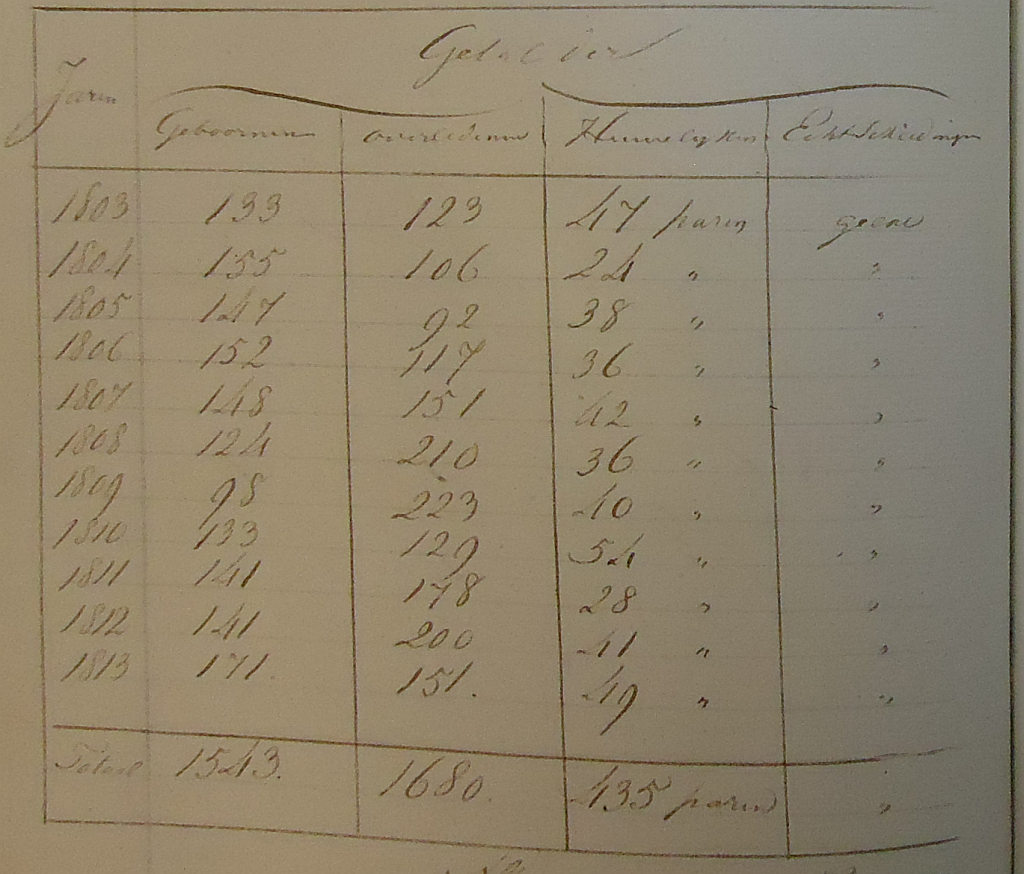 Getal der
Jaren Geboornen overledenen Huwelyken Echt Scheidingen
1803 133 123 47 paren geene
1804 155 106 24 " "
1805 147 92 38 " "
1806 152 117 36 " "
1807 148 151 42 " "
1808 124 210 36 " "
1809 98 223 40 " "
1810 133 129 54 " "
1811 141 178 28 " "
1812 141 200 41 " "
1813 171. 151. 49 " "
Totaal 1543. 1680. 435 paren "